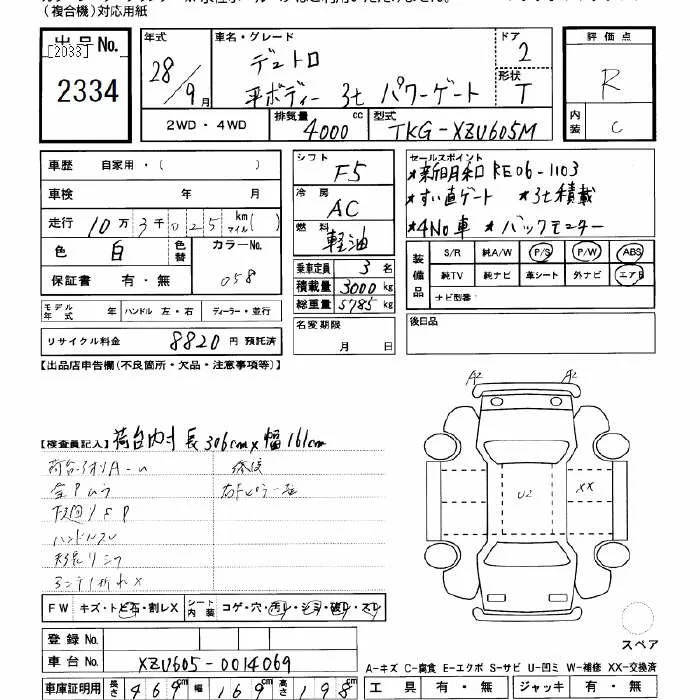 (複合機)対応用紙
出品No.
[2033]
2334
年式
28/9月
車名・グレード
デュトロ
平ボディー 3t パワーゲート
ドア
2
形状
T
評価点
R
内装
C
2WD・4WD
排気量
4000 cc
型式
TKG-XZU605M
車歴 自家用・( )
車検 年 月
走行 10万3千025 km マイル( )
色 白
色替
カラーNo.
058
保証書 有・無
モデル年式 年
ハンドル 左・右
ディーラー・並行
リサイクル料金 8820円 預託済
シフト
F5
冷房
AC
燃料
軽油
乗車定員 3名
積載量 3000kg
総重量 5785kg
名変期限
月 日
セールスポイント
★新明和 RE06-1103
★すい直ゲート ★3t積載
★4No車 ★バックモニター
装備品
S/R 純A/W P/S P/W ABS
純TV 純ナビ 革シート 外ナビ エアB
ナビ型番:
後日品
【出品店申告欄(不良箇所・欠品・注意事項等)】
【検査員記入】荷台内寸 長306cm×幅161cm
ハンドルスレ
A2 A2
U2
XX
FW キズ・トビ石・割レX
シート内装 コゲ・穴・汚レ・シミ・破レ・スレ
登録No.
車台No. XZU605-0014069
車庫証明用 長さ 469cm 幅 169cm 高さ 198cm
スペア
A-キズ C-腐食 E-エクボ S-サビ U-凹ミ W-補修 XX-交換済
工具 有・無 ジャッキ 有・無